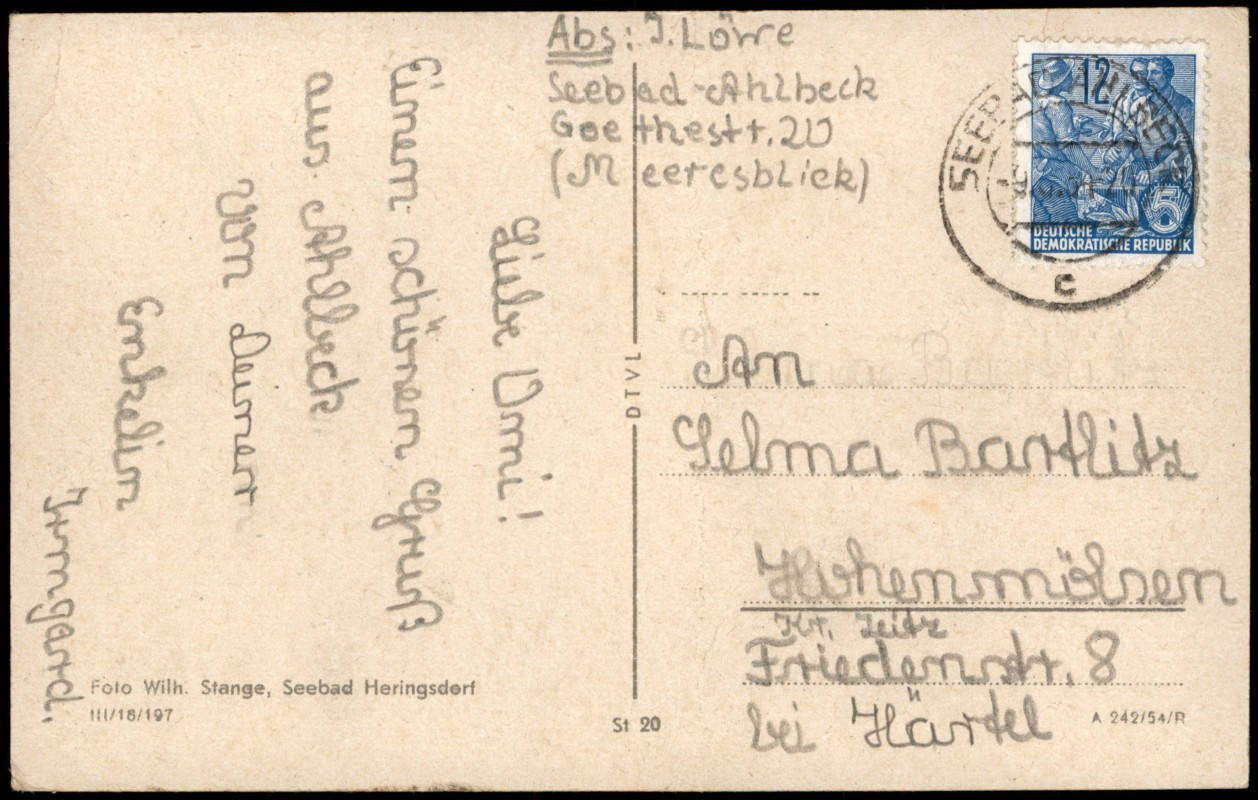 Abs: J. Löwe
Seebad-Ahlbeck
Goethestr. 20
(Meeresblick)
Liebe Omi!
Einen schönen Gruß
aus Ahlbeck
von Deiner
Enkelin
Irmgard.
12
5
DEUTSCHE
DEMOKRATISCHE REPUBLIK
SEEBAD AHLBECK
c
An
Selma Bartlitz
Hohenmölsen
Kr. Zeitz
Friedenstr. 8
bei Härtel
DTVL
Foto Wilh. Stange, Seebad Heringsdorf
III/18/197
St 20
A 242/54/R